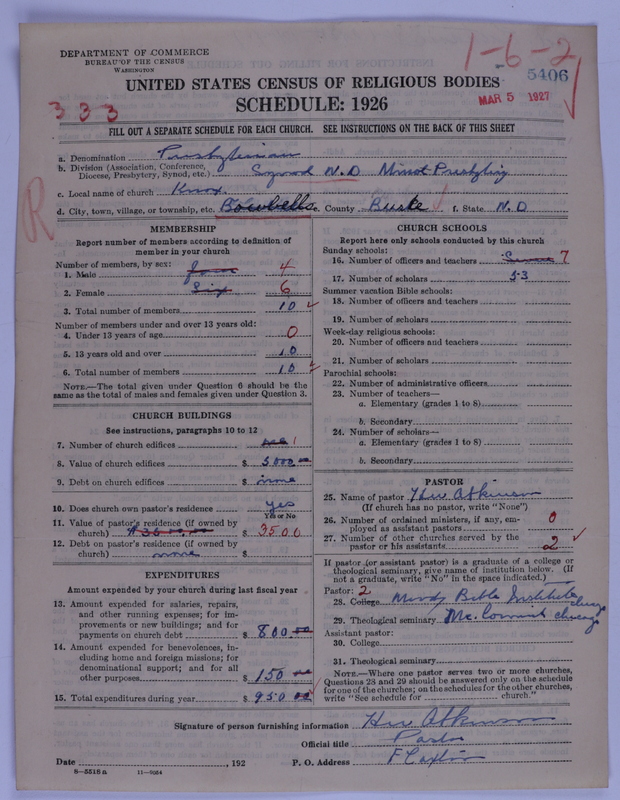 DEPARTMENT OF COMMERCE
BUREAU OF THE CENSUS
WASHINGTON
1-6-2
5406
MAR 5 1927
UNITED STATES CENSUS OF RELIGIOUS BODIES
333
SCHEDULE: 1926
FILL OUT A SEPARATE SCHEDULE FOR EACH CHURCH. SEE INSTRUCTIONS ON THE BACK OF THIS SHEET
a. Denomination Presbyterian
b. Division (Association, Conference, Diocese, Presbytery, Synod, etc.) N.D Minot Presbytery
c. Local name of church Knox
R
d. City, town, village, or township, etc. Bowbells e. County Burke f. State N.D
MEMBERSHIP
Report number of members according to definition of member in your church
Number of members, by sex:
1. Male four 4
2. Female Six 6
3. Total number of members 10
Number of members under and over 13 years old:
4. Under 13 years of age 0
5. 13 years old and over 10
6. Total number of members 10
NOTE.—The total given under Question 6 should be the same as the total of males and females given under Question 3.
CHURCH BUILDINGS
See instructions, paragraphs 10 to 12
7. Number of church edifices one 1
8. Value of church edifices $ 5000 00
9. Debt on church edifices $ none
10. Does church own pastor's residence yes
Yes or No
11. Value of pastor's residence (if owned by church) $ 3500
12. Debt on pastor's residence (if owned by church) none $
EXPENDITURES
Amount expended by your church during last fiscal year
13. Amount expended for salaries, repairs, and other running expenses; for improvements or new buildings; and for payments on church debt $ 800 00
14. Amount expended for benevolences, including home and foreign missions; for denominational support; and for all other purposes $ 150 00
15. Total expenditures during year $ 950 00
CHURCH SCHOOLS
Report here only schools conducted by this church
Sunday schools:
16. Number of officers and teachers Seven 7
17. Number of scholars 53
Summer vacation Bible schools:
18. Number of officers and teachers
19. Number of scholars
Week-day religious schools:
20. Number of officers and teachers
21. Number of scholars
Parochial schools:
22. Number of administrative officers
23. Number of teachers—
a. Elementary (grades 1 to 8)
b. Secondary
24. Number of scholars—
a. Elementary (grades 1 to 8)
b. Secondary
PASTOR
25. Name of pastor Atkinson
(If church has no pastor, write "None")
26. Number of ordained ministers, if any, employed as assistant pastors 0
27. Number of other churches served by the pastor or his assistants 2
If pastor (or assistant pastor) is a graduate of a college or theological seminary, give name of institution below. (If not a graduate, write "No" in the space indicated.)
Pastor: 2
28. College Moody Bible Institute Chicago
29. Theological seminary Mc. Cormick chicago
Assistant pastor:
30. College
31. Theological seminary
NOTE.—Where one pastor serves two or more churches, Questions 28 and 29 should be answered only on the schedule for one of the churches; on the schedules for the other churches, write "See schedule for church."
Signature of person furnishing information Atkinson
Official title Pastor
Date , 192 P. O. Address Flaxton
8—5518 a 11—9064